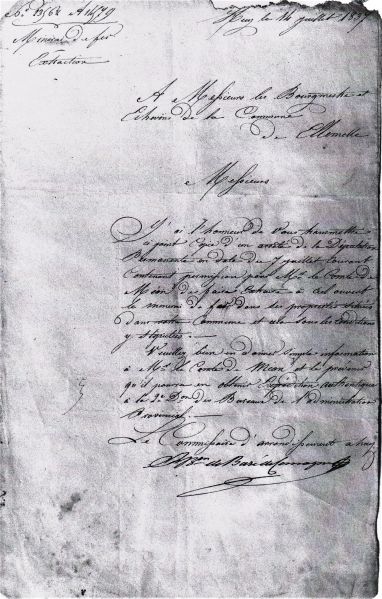 Huy le 14 juillet 18
Minerai de fer
Extraction
A Messieurs les Bourgmestre et
Echevins de la Commune
de Ellemelle
Messieurs
J'ai l'honneur de vous transmettre
ci joint Copie d'un arrêté de la Députation
Permanente en date du 7 juillet Courant
Contenant permission pour Mr. le Comte de
Méan de faire Extraire à Ciel ouvert
le minerai de fer dans les propriétés situées
dans votre Commune et cela sous les Conditions
y stipulées.
Veuillez bien en donner Simple information
à Mr. le Comte de Méan et le prévenir
qu'il pourra en obtenir Expédition authentique
à la 2e Don des Bureaux de l'administration
Provinciale
Le Commissaire d'arrondissement à huy
de Baré de Comogne